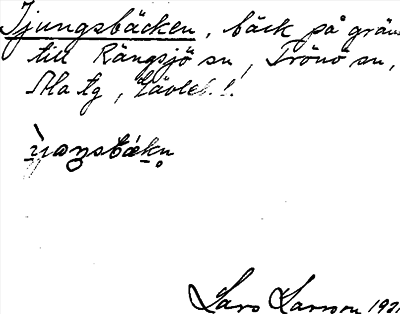 Ljungsbäcken, bäck på grän
till Rängsjö sn, Trönö sn,
Ala tg, Gävleb.l.
Lars Larsson 19